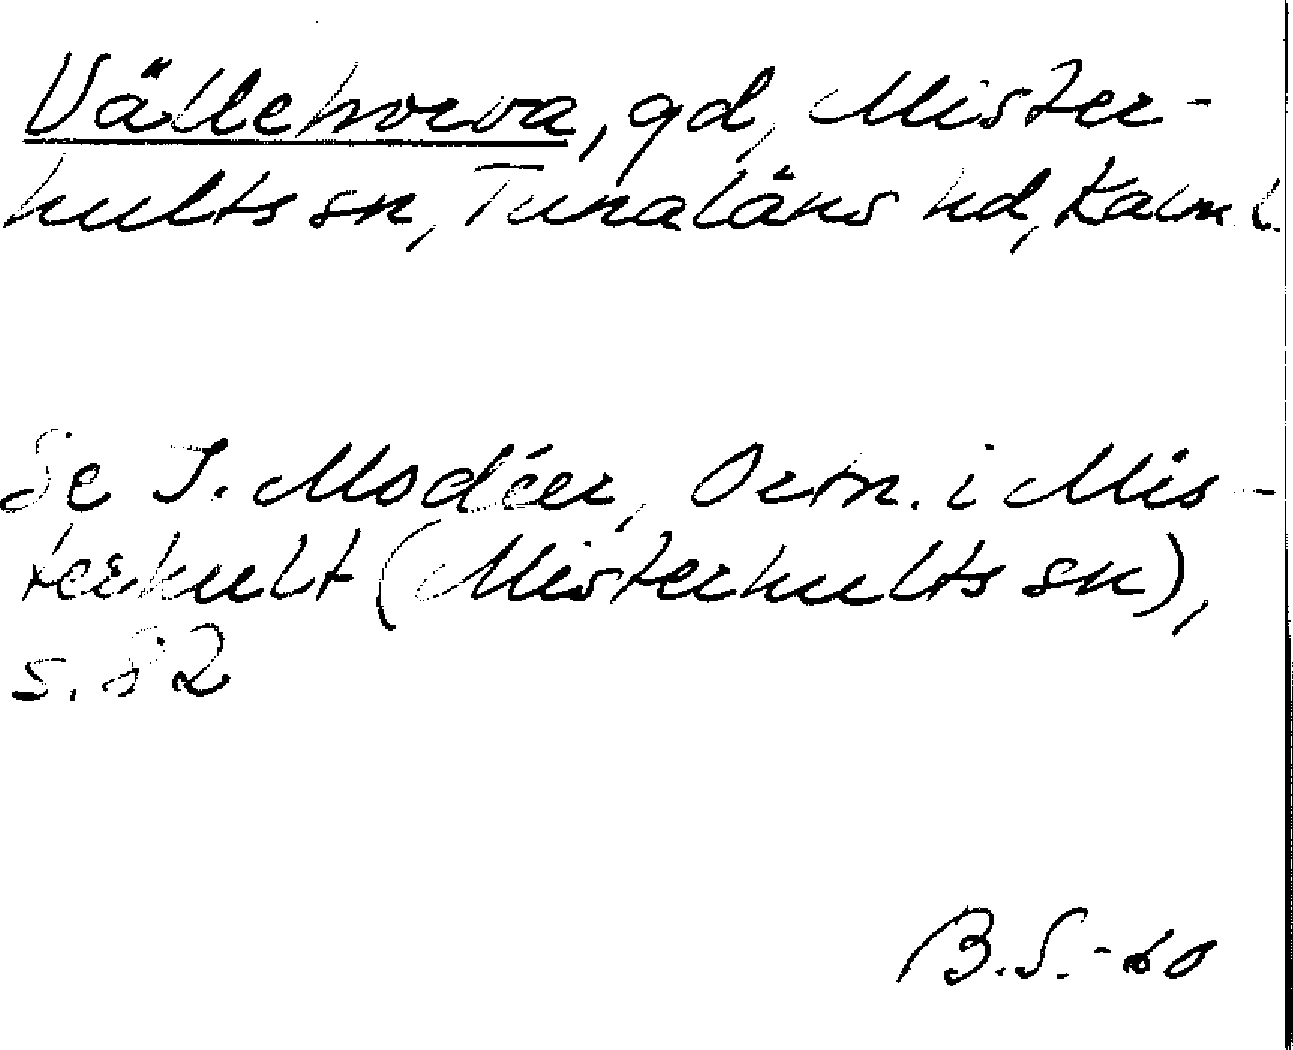 Vällehorva, gd, Mister-
hults sn, Tunaläns hd, Kalm l.
Se I. Modéer, Ortn. i Mis-
terhult (Misterhults sn),
s. 82
B.S. -60